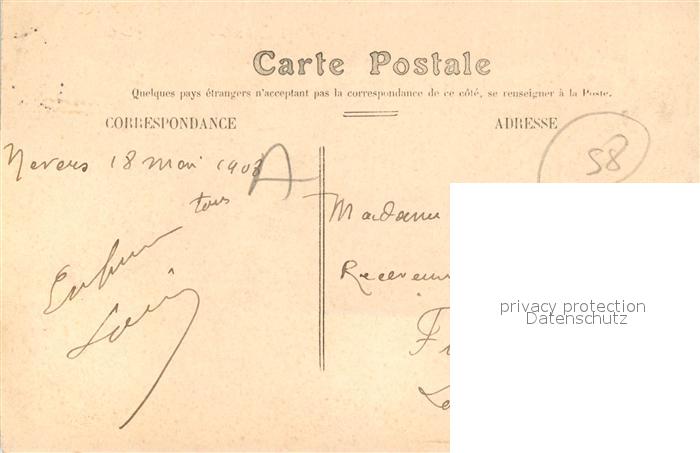 Carte Postale
Quelques pays étrangers n'acceptant pas la correspondance de ce côté, se renseigner à la Poste.
CORRESPONDANCE
ADRESSE
58
Nevers 18 Mai 1908
A
tous
Madame
privacy protection
Datenschutz